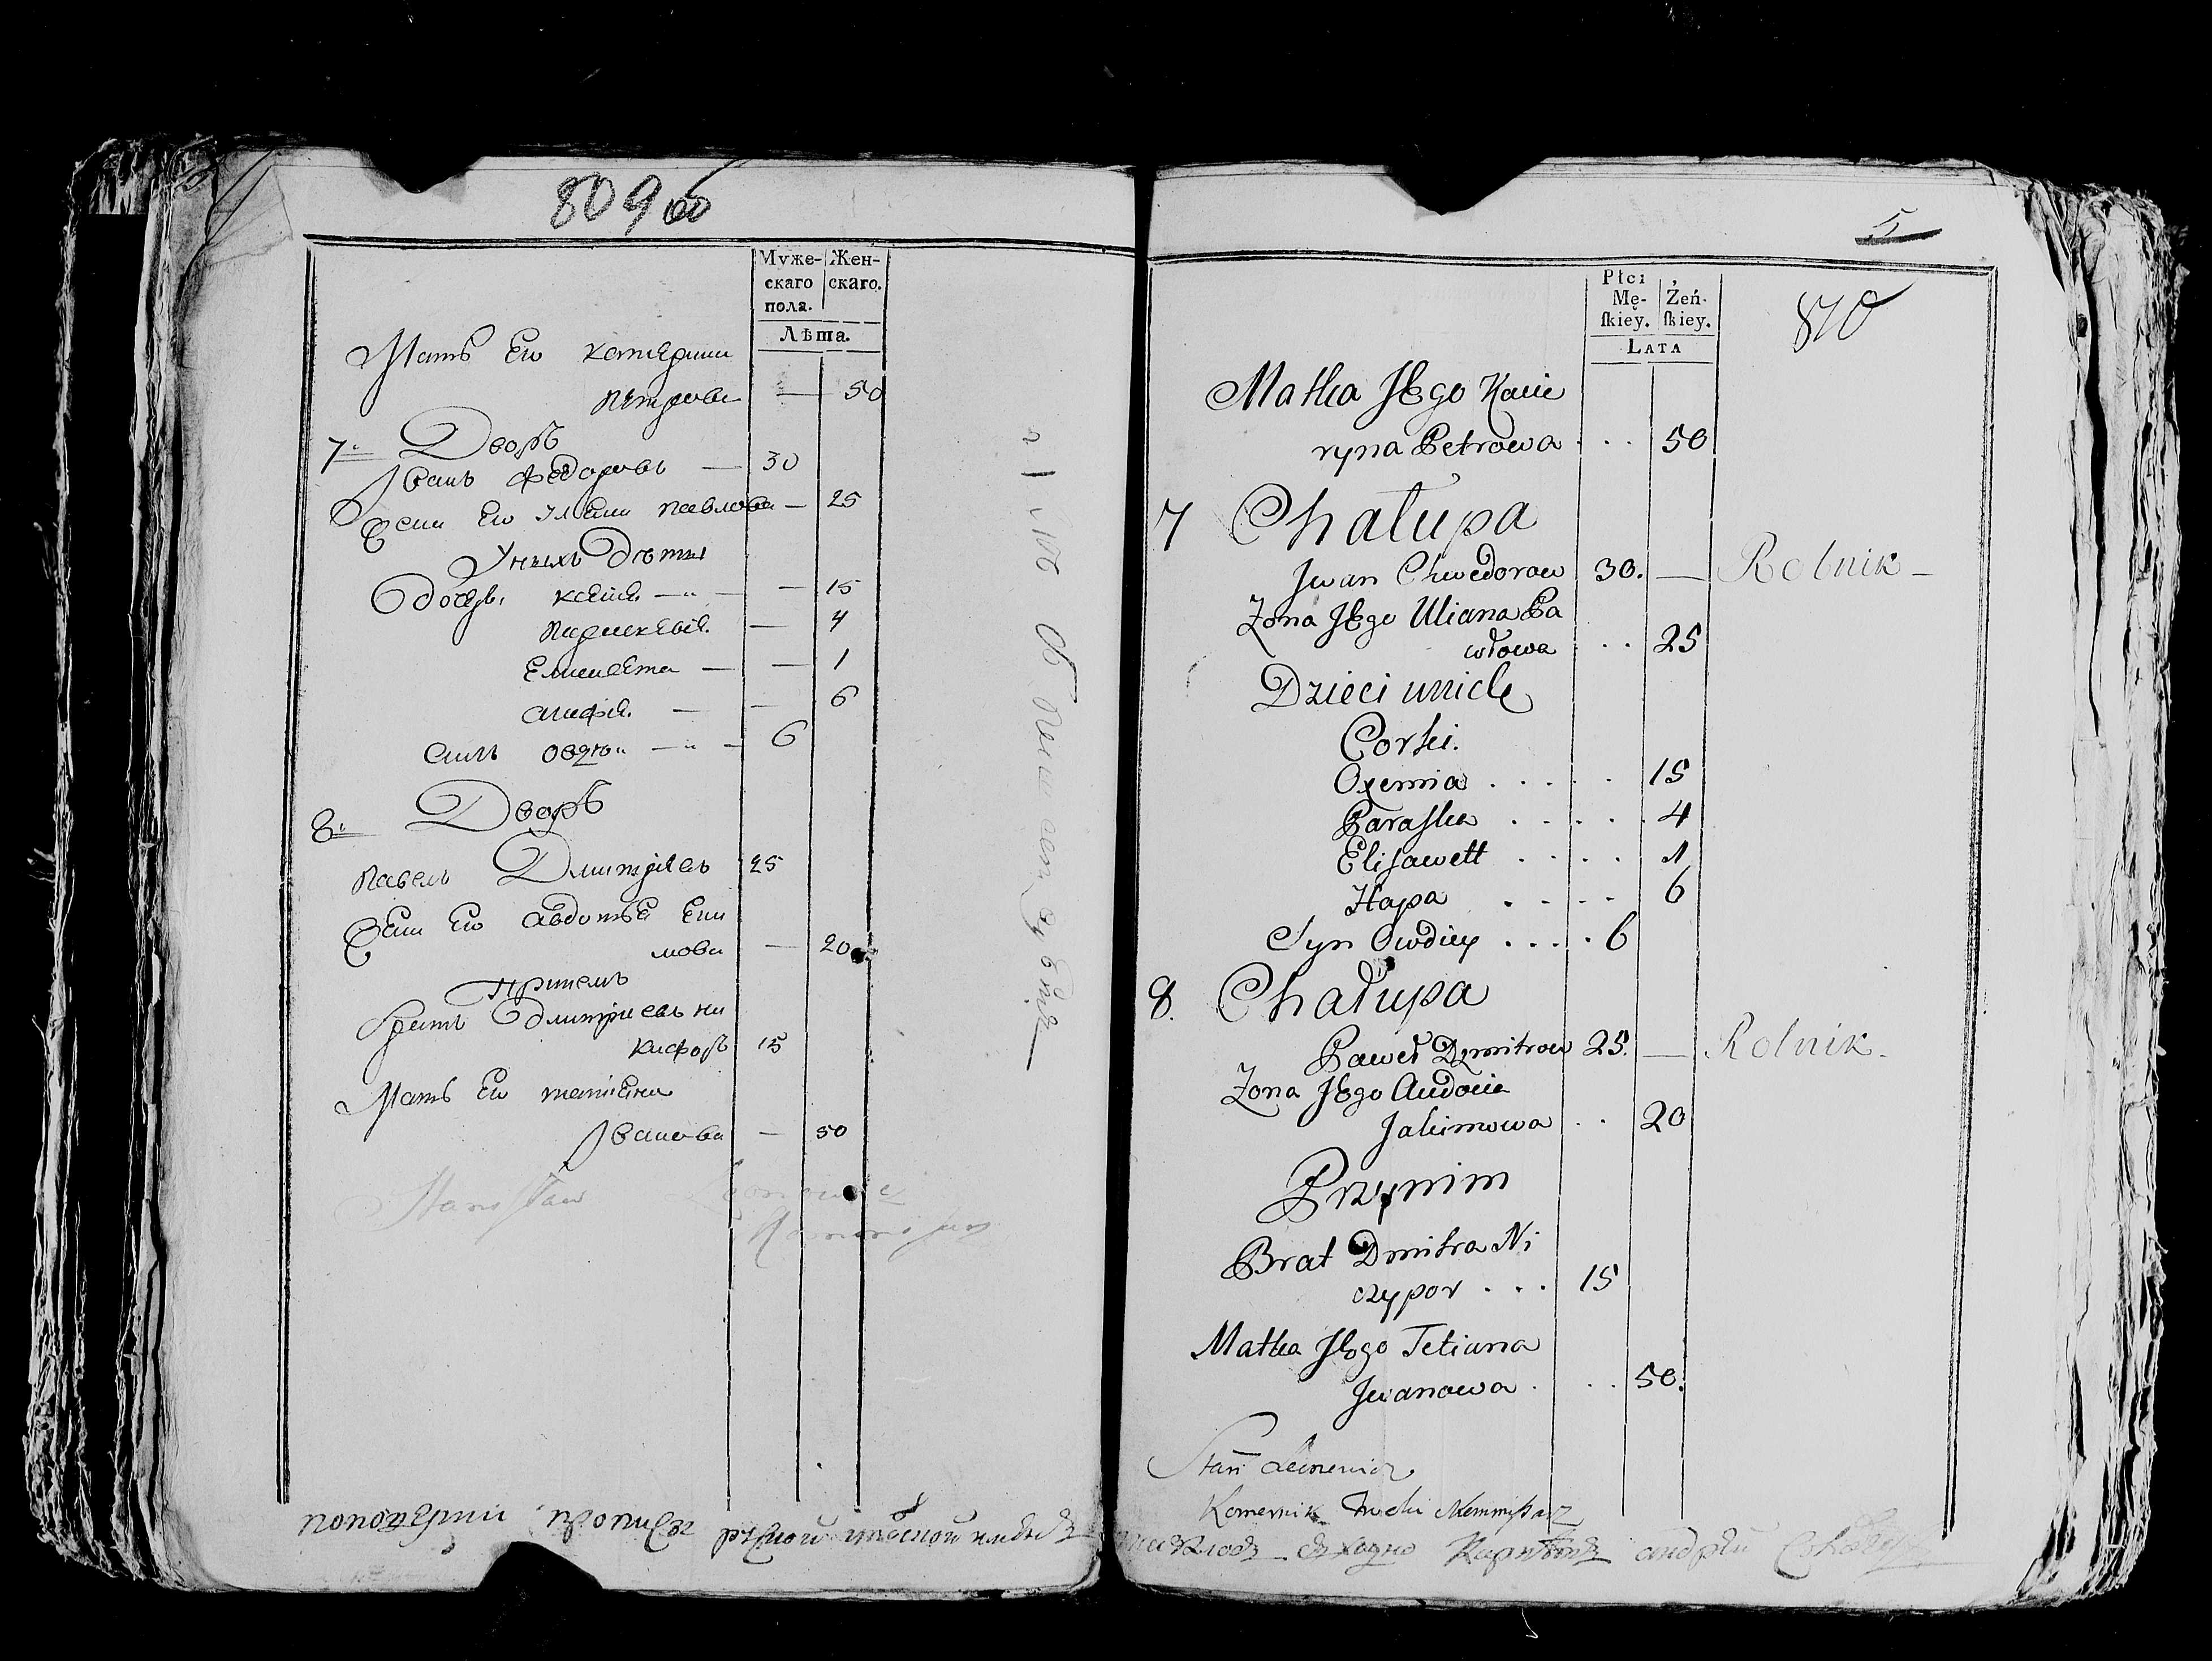 809 об
Муже-
скаго
пола.
Жен-
скаго.
Лѣта.
Мать Ево катерина
петрова — 50
7. Дворъ
Иванъ Федоровъ — 30
Жена Ево Улʼяна павлова — 25
У нихъ дѣти
Дочери ксеня — 15
параскевія — 4
Елисавета — 1
агафія — 6
сынъ овдѣй — 6
8. Дворъ
павелъ Дмитріевъ 25
Жена Ево авдотья Еки
мова — 20
При немъ
братъ Дмитриевъ ни
кифоръ 15
Мать Ево татіяна
Иванова — 50
Stanisław
5
870
Płci
Mę-
ſkiey.
Żeń-
ſkiey.
LATA
Matka JEgo Katie
ryna Petrowa . . . 50
7 Chałupa
Jwan Chwedorow 30. — Rolnik —
Zona JEgo Uliana Pa
włowa . . . 25
Dzieci unich
Corki.
Oxemia . . . . . 15
Paraſka . . . . . 4
Eliſawett . . . . 1
Hapa . . . . 6
Syn Owdiey . . . . 6
8. Chałupa
Paweł Dymitrow 25. — Rolnik —
Zona JEgo Audocia
Jakimowa . . 20
Przynim
Brat Dmitra Ni
czypor . . . 15
Matka JEgo Tetiana
Jwanowa . . . 50.
Komernik
андрѣй